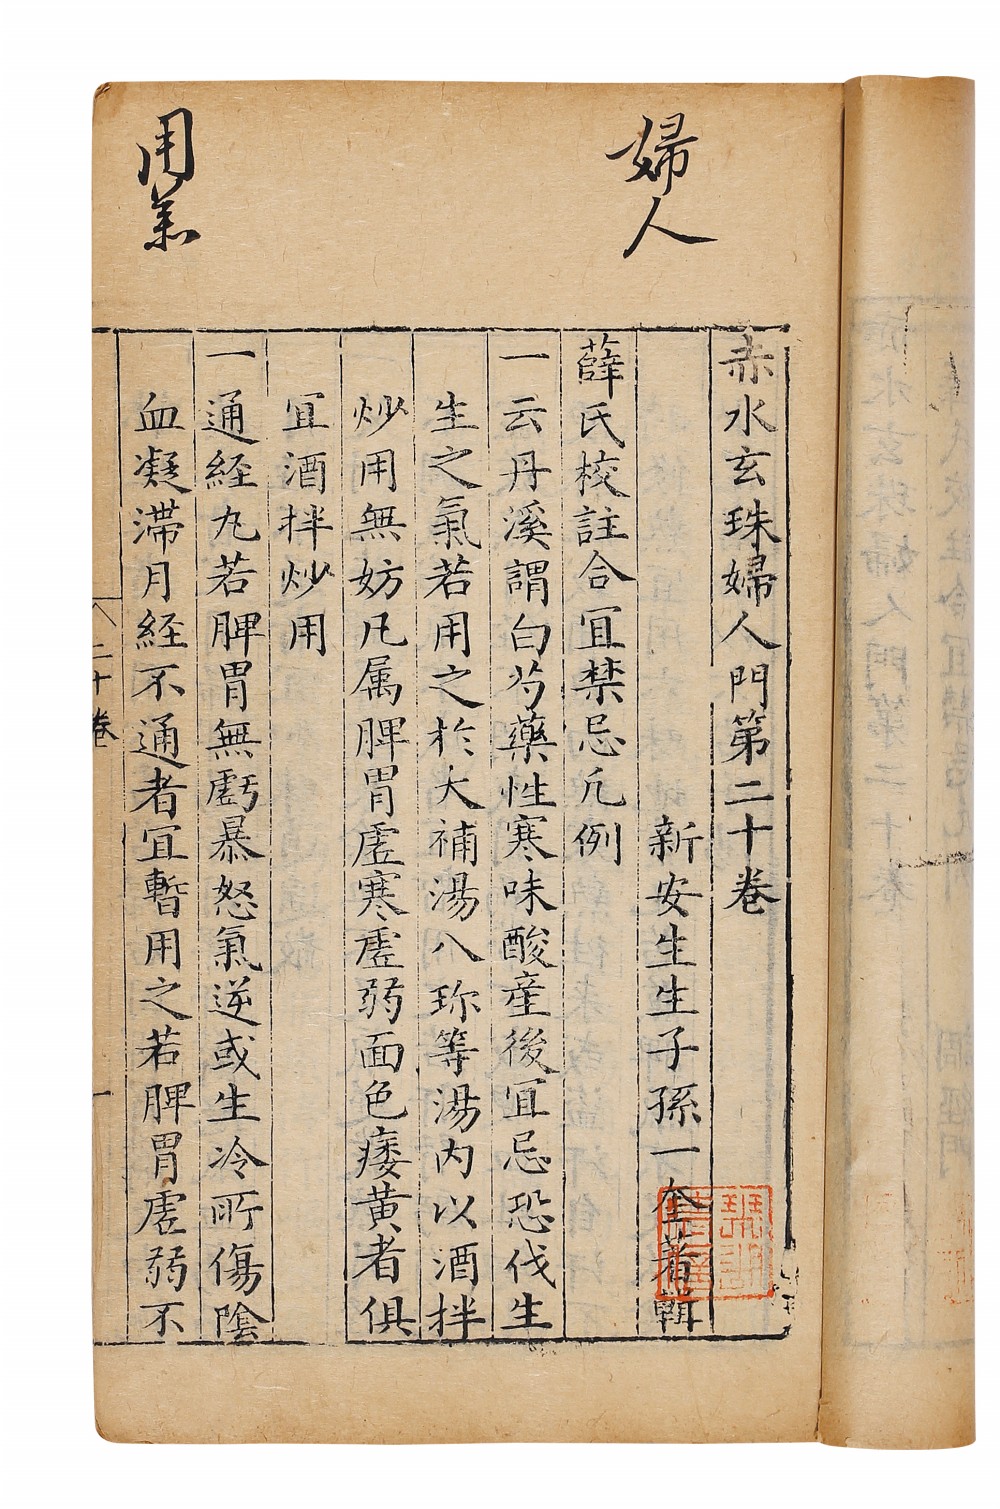 婦人
用藥
赤水玄珠婦人門第二十卷
新安生生子孫一奎著輯
薛氏校註合宜禁忌凢例
一云丹溪謂白芍藥性寒味酸産後宜忌恐伐生
生之氣若用之於大補湯八珎等湯内以酒拌
炒用無妨凡属脾胃虛寒虛弱面色痿黃者俱
宜酒拌炒用
一通経丸若脾胃無虧暴怒氣逆或生冷所傷陰
血凝滞月経不通者宜暫用之若脾胃虛弱不
二十卷
一